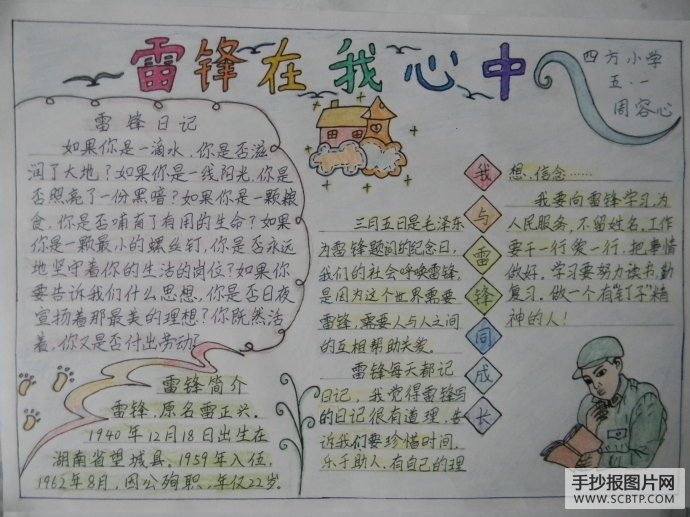 雷锋在我心中
四方小学
五.一
周容心
雷锋日记
如果你是一滴水,你是否滋
润了大地?如果你是一线阳光,你是
否照亮了一份黑暗?如果你是一颗粮
食,你是否哺育了有用的生命?如果
你是一颗最小的螺丝钉,你是否永远
地坚守着你的生活的岗位?如果你
要告诉我们什么思想,你是否日夜
宣扬着那最美的理想?你既然活
着,你又是否付出劳动?
雷锋简介
雷锋,原名雷正兴。
1940年12月18日出生在
湖南省望城县。1959年入伍,
1962年8月,因公殉职,年仅22岁。
三月五日是毛泽东
为雷锋题词的纪念日,
我们的社会呼唤雷锋,
是因为这个世界需要
雷锋,需要人与人之间
的互相帮助关爱。
雷锋每天都记
日记,我觉得雷锋写
的日记很有道理,告
诉我们要珍惜时间,
乐于助人,有自己的理
我与雷锋同成长
想、信念……
我要向雷锋学习,为
人民服务,不留姓名,工作
要干一行爱一行,把事情
做好。学习要努力读书,勤
复习。做一个有“钉子”精
神的人!
手抄报图片网
WWW.SCBTP.COM